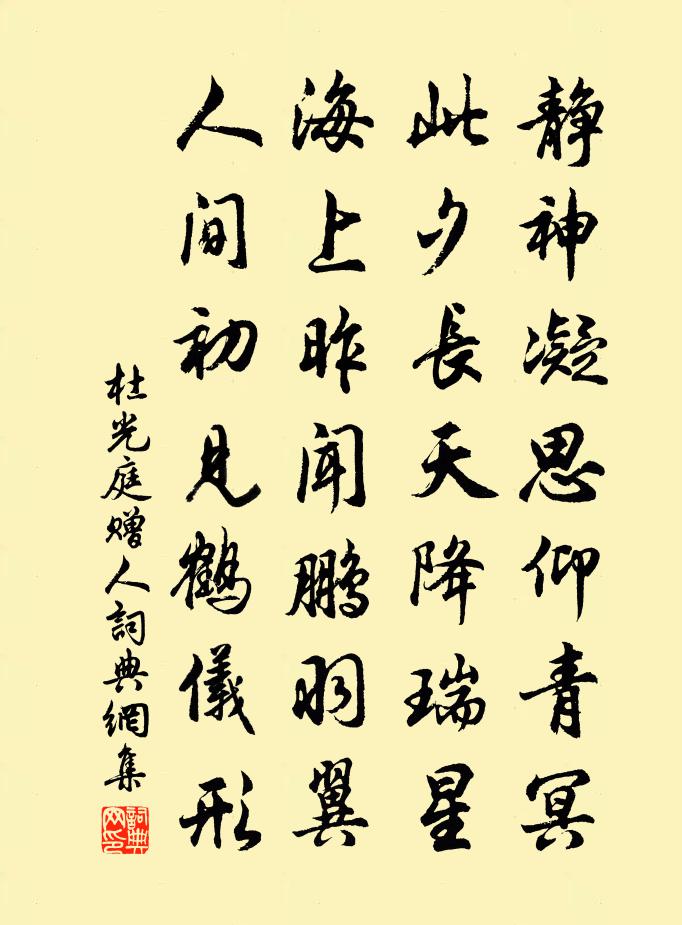 静神凝思仰青冥
此夕長天降瑞星
海上昨闻鵬羽翼
人间初見鶴儀形
杜光庭赠人詞典網集
詞典网印